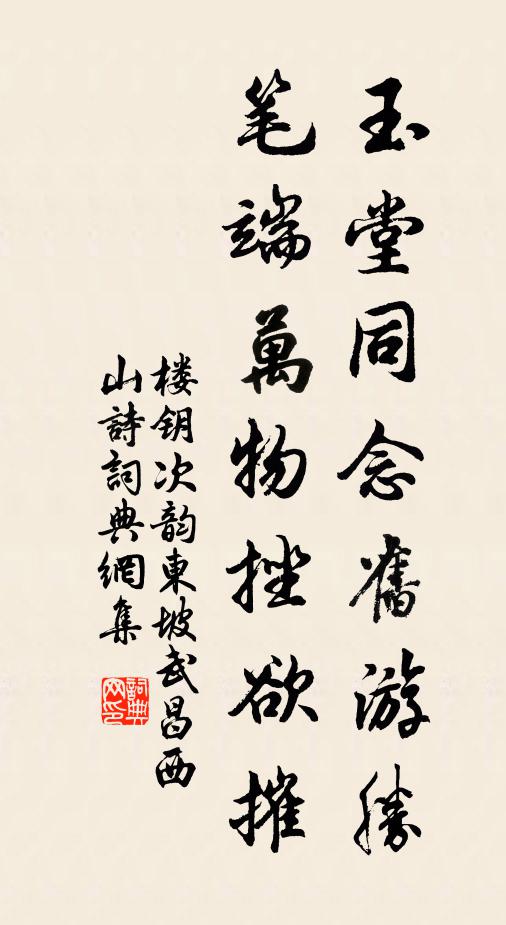 玉堂同念舊游勝
笔端萬物挫欲摧
楼钥次韵東坡武昌西
山詩詞典網集
詞典
网印